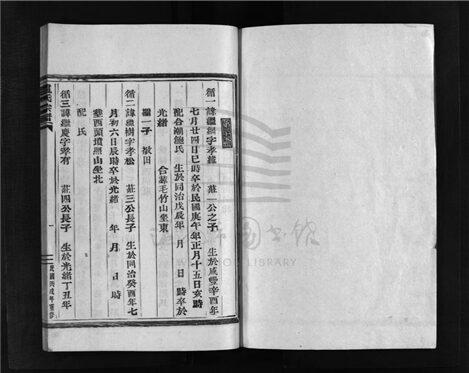 循一諱繼繩字孝維 莊一公之子 生於咸豐辛酉年
七月廿四日巳時卒於民國庚午年正月十五日亥時
配合湖鮑氏 生於同治戊辰年 月 日 時卒於
光緒 合葬毛竹山坐東
繼一子 毓田
循二諱繼樹字孝松 莊三公長子 生於同治癸酉年七
月初六日辰時卒於光緒 年 月 日 時
葬西頭墳照山坐北
配 氏
循三諱繼慶字孝有 莊四公長子 生於光緒丁丑年
民國丙戌年重修
LIBRARY